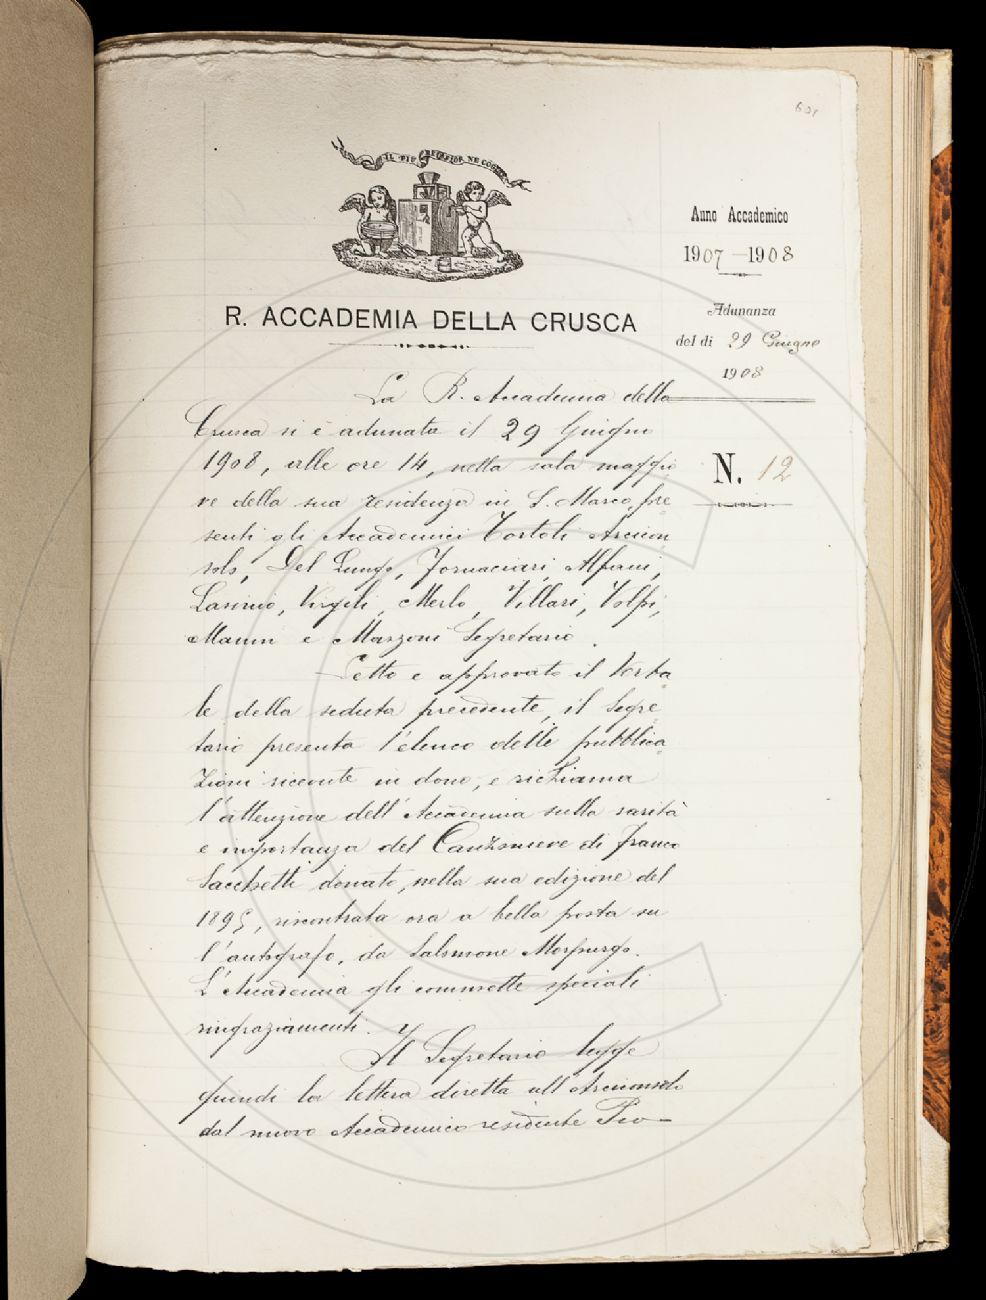 IL PIÙ BEL FIOR NE COGLIE
R. ACCADEMIA DELLA CRUSCA
Anno Accademico
1907-1908
Adunanza
del dì 29 Giugno
1908
N. 12
La R. Accademia della
Crusca si è adunata il 29 Giugno
1908, alle ore 14, nella sala maggio
re della sua residenza in S. Marco, pre
senti gli Accademici Tortoli Arcicon
solo, Del Lungo, Fornaciari, Alfani,
Lasinio, Virgili, Merlo, Villari, Volpi,
Mazzoni Segretario.
Letto e approvato il Verba
le della seduta precedente, il Segre
tario presenta l'elenco delle pubblica
zioni ricevute in dono, e richiama
l'attenzione dell'Accademia sulla rarità
e importanza del Canzoniere di Franco
Sacchetti donato, nella sua edizione del
1895, riscontrata ora a bella posta su
l'autografo, da Salomone Morpurgo.
L'Accademia gli commette speciali
ringraziamenti.
Il Segretario legge
quindi la lettera diretta all'Arciconsolo
dal nuovo Accademico residente Pio